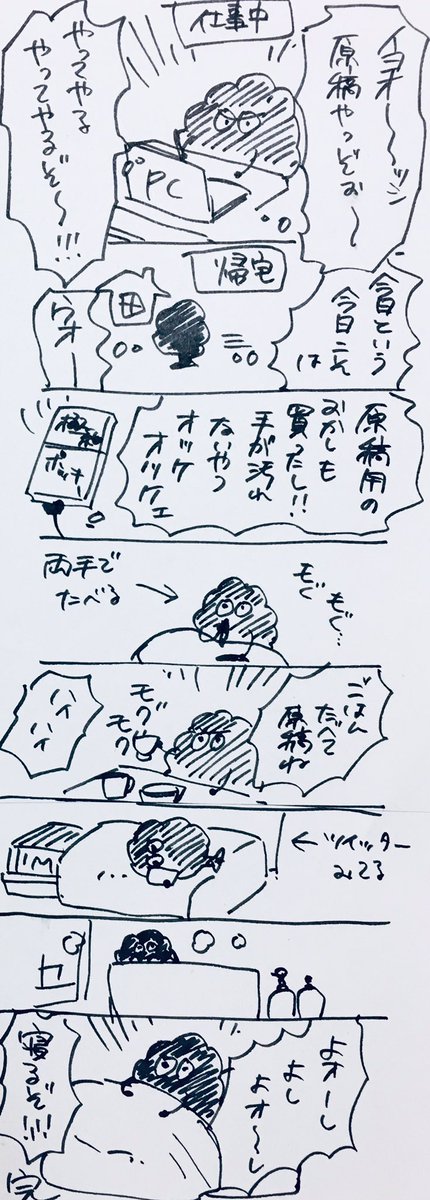 仕事中
イヨオー〜ッシ
原稿やっぞぉ〜
PC
やってやる
やってやるぞ〜!!!
帰宅
今日という
今日こそ
は
ウオー
原稿用の
おかしも
買ったし!!
手が汚れ
ないやつ
オッケ
オッケェ
極細
ポッキー
もぐ
もぐ…
両手で
たべる →
ごはん
たべて
原稿ね
モグ
モグ
ハイ
ハイ
←ツイッター
みてる
よオーし
よし
よオ〜し
寝るぞ!!!
完